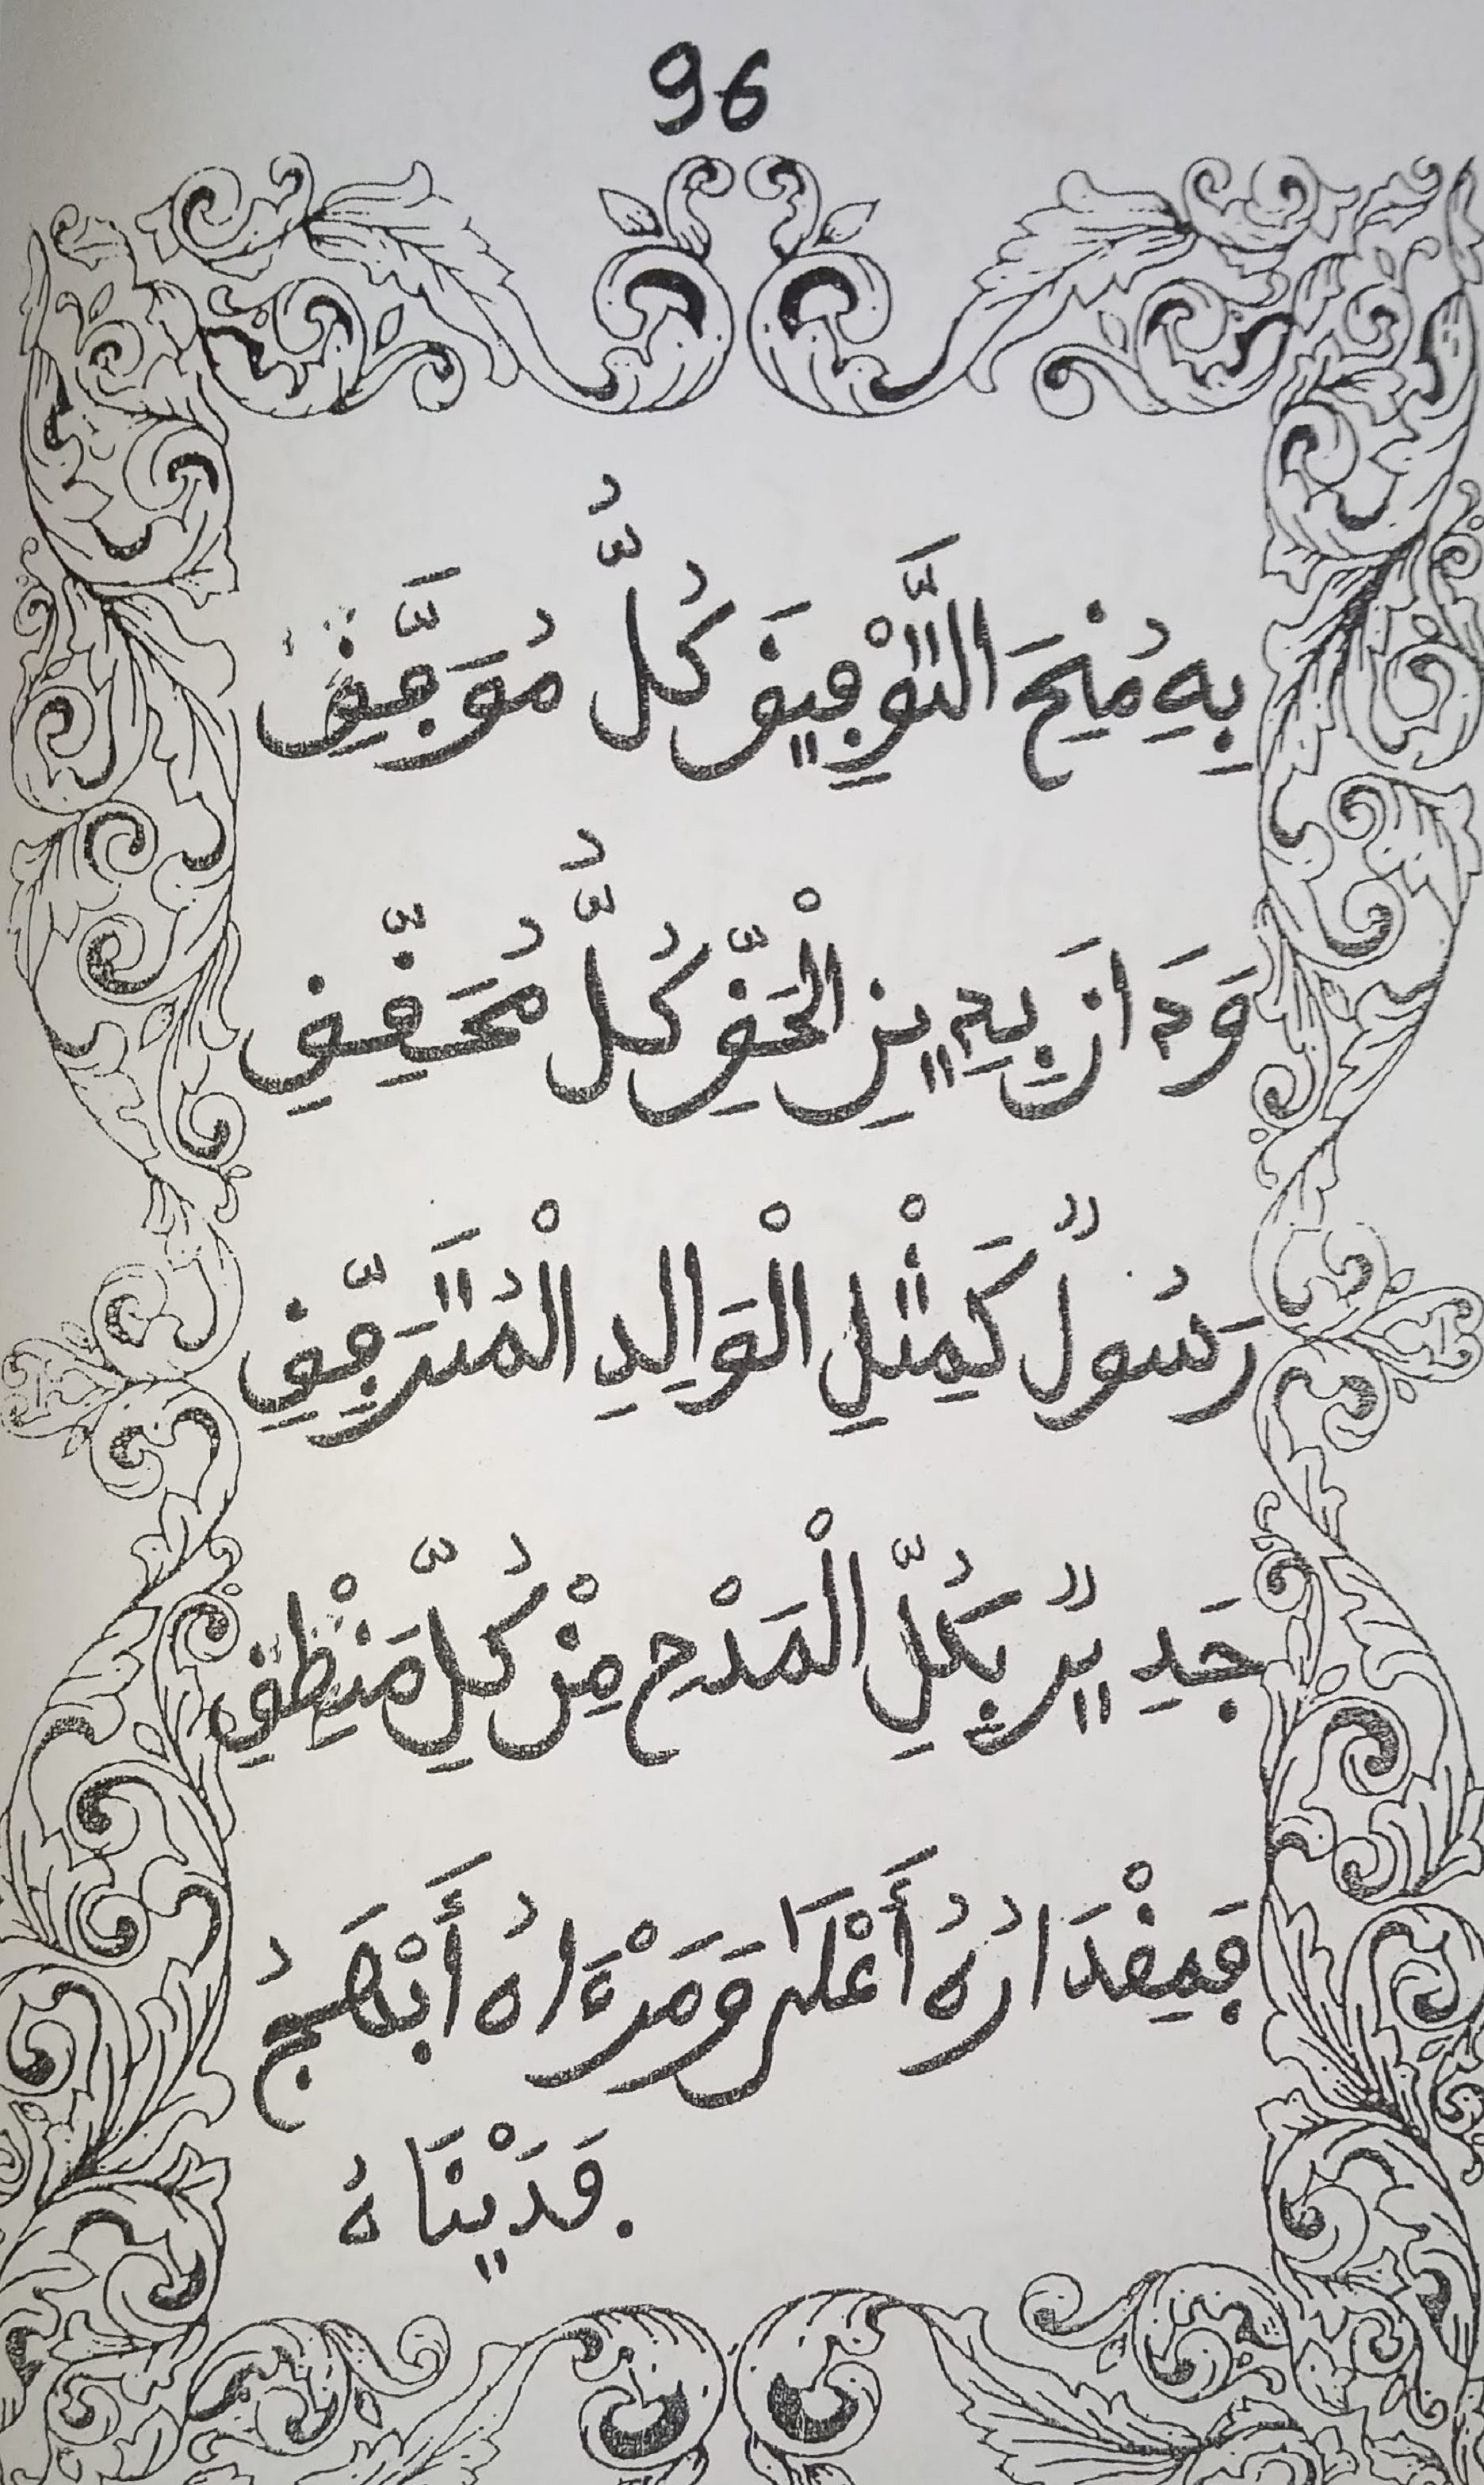 96
بِهِ مُنِحَ التَّوْفِيقَ كُلُّ مُوَفَّقٍ
وَدَانَ بِدِينِ الْحَقِّ كُلُّ مُحَقِّقِ
رَسُولٌ كَمِثْلِ الْوَالِدِ الْمُتَرَفِّقِ
جَدِيرٌ بِكُلِّ الْمَدْحِ مِنْ كُلِّ مَنْطِقِ
فَمِقْدَارُهُ أَعْلَى وَمَرْءَاهُ أَبْهَجُ
فَدَيْنَاهُ